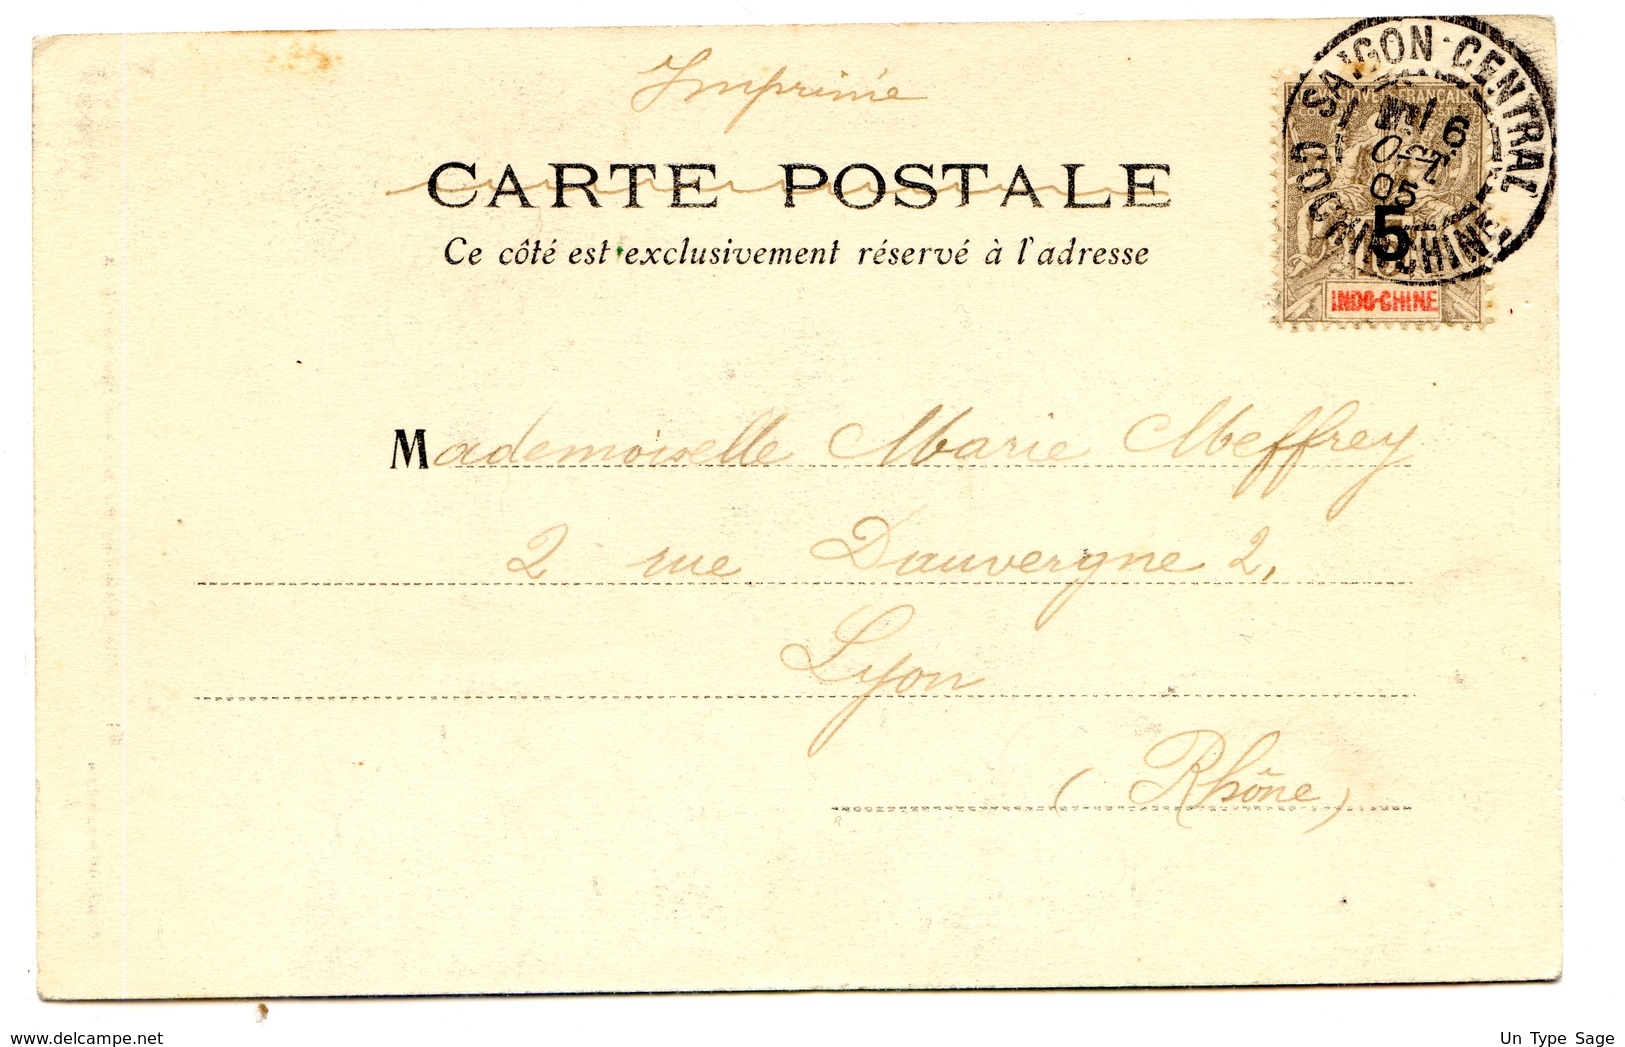 Imprimé
CARTE POSTALE
Ce côté est exclusivement réservé à l'adresse
SAIGON-CENTRAL
6
OCT.
05
COCHINCHINE
5
INDO-CHINE
Mademoiselle Marie Meffrey
2 rue Dauvergne 2,
Lyon
(Rhône)
delcampe.net
Un Type Sage